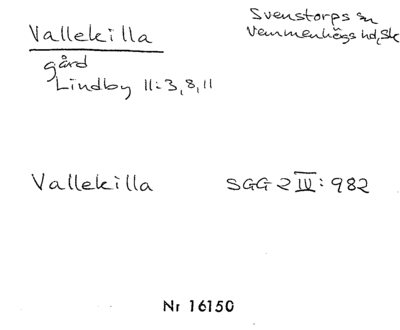 Vallekilla
Svenstorps sn
Vemmenhögs hd, Sk
gård
Lindby 11:3, 8, 11
Vallekilla
SGG 2 IV: 982
Nr 16150